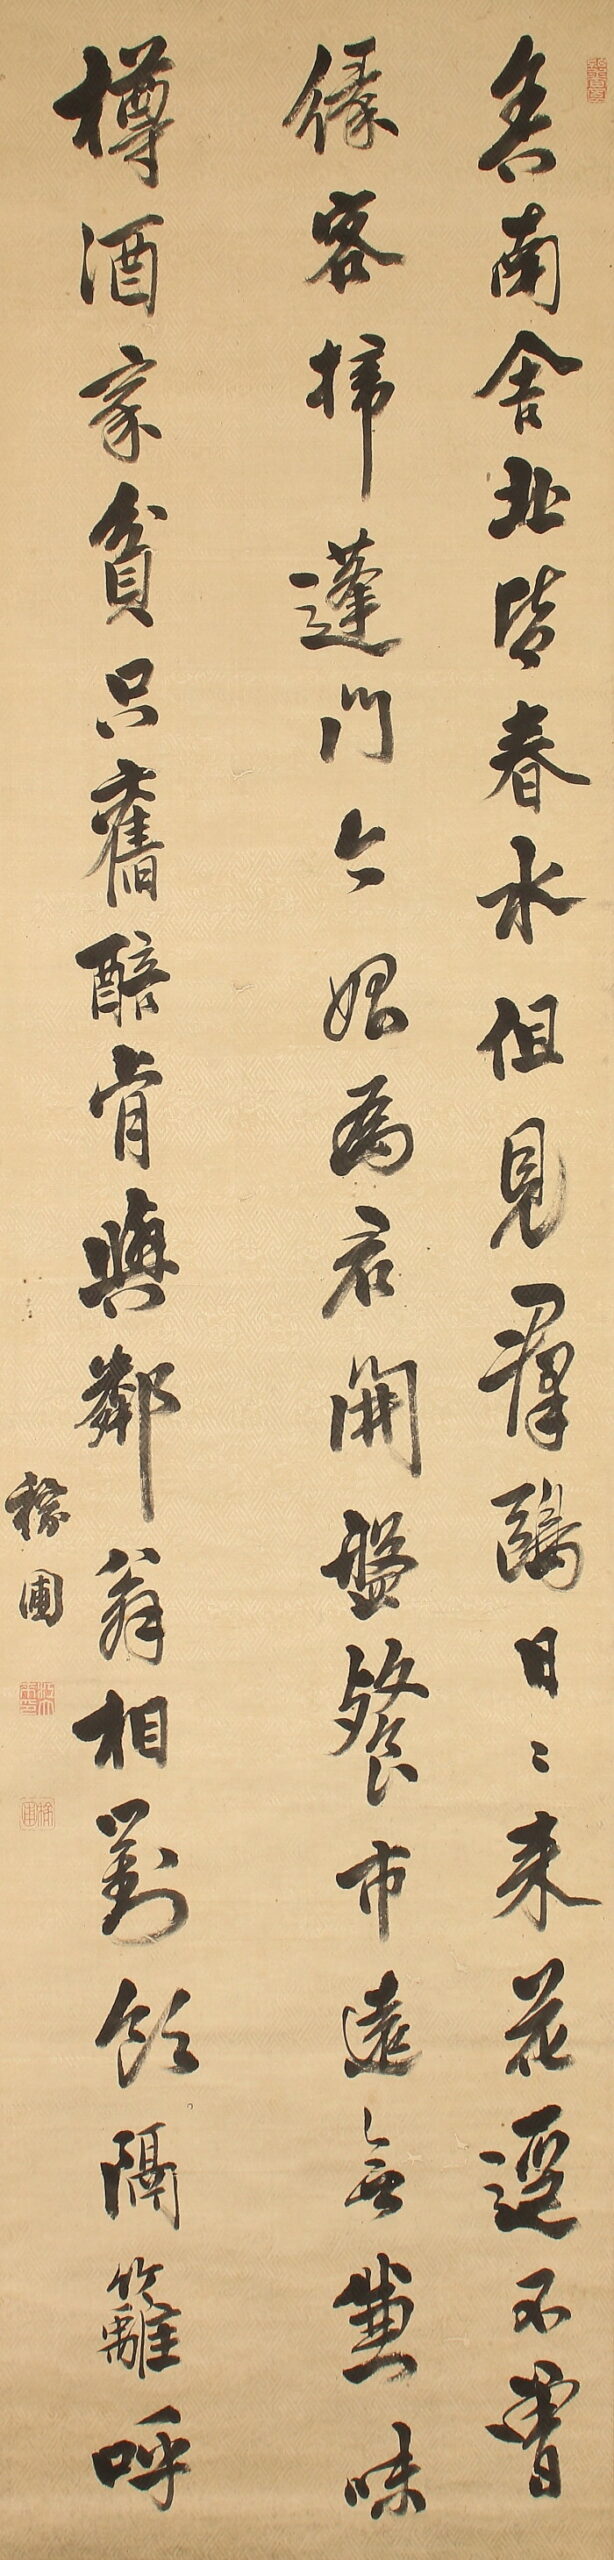 舍南舍北皆春水但見羣鷗日〻來花逕不曾
緣客掃蓬門今始為君開盤餐市遠無兼味
樽酒家貧只舊醅肯與鄰翁相對飲隔籬呼
稼圃